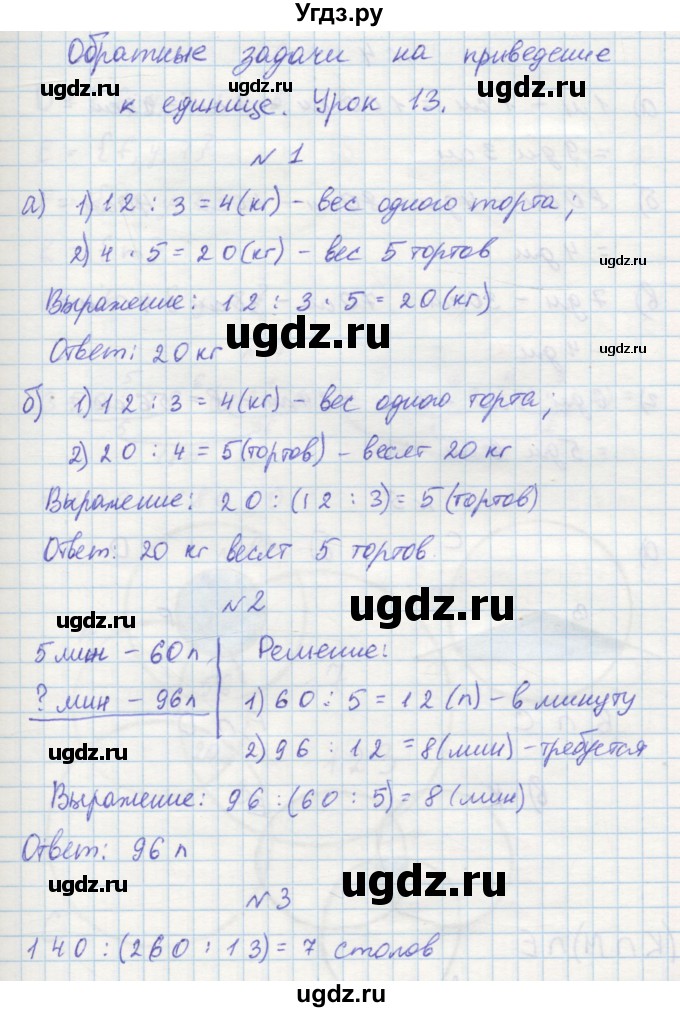 Угдз.ру
Обратные задачи на приведение
ugdz.ru к единице. Урок 13. ugdz.ru
№ 1
а) 1) 12 : 3 = 4 (кг) – вес одного торта;
2) 4 · 5 = 20 (кг) – вес 5 тортов ugdz.ru
Выражение: 12 : 3 · 5 = 20 (кг)
ugdz.ru
Ответ: 20 кг
б) 1) 12 : 3 = 4 (кг) – вес одного торта;
2) 20 : 4 = 5 (тортов) – весят 20 кг
ugdz.ru ugdz.ru
Выражение: 20 : (12 : 3) = 5 (тортов)
Ответ: 20 кг весят 5 тортов
№ 2 ugdz.ru
ugdz.ru
5 мин – 60 л Решение:
? мин – 96 л 1) 60 : 5 = 12 (л) – в минуту
ugdz.ru 2) 96 : 12 = 8 (мин) – требуется ugdz.ru
Выражение: 96 : (60 : 5) = 8 (мин)
Ответ: 96 л
ugdz.ru № 3 ugdz.ru
140 : (260 : 13) = 7 столов
ugdz.ru